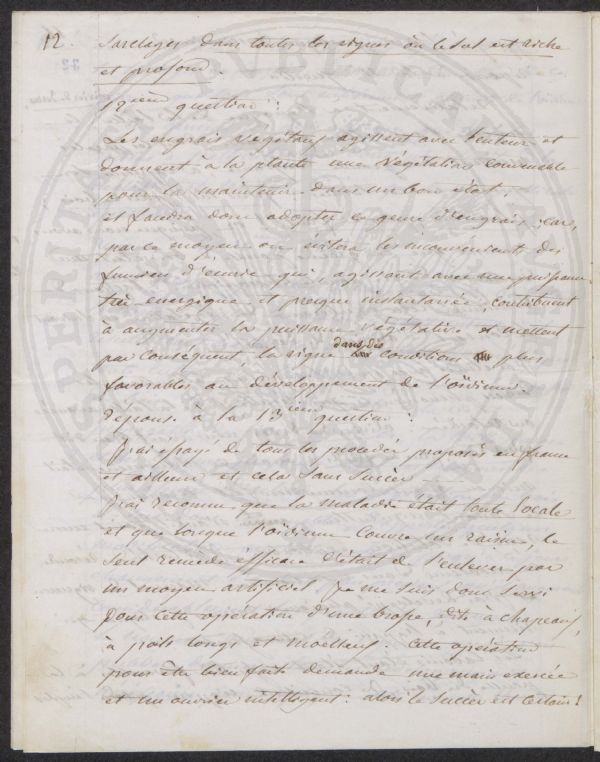 12.
Sarclages dans toutes les vignes où le sol est riche
et profond.
12ieme question :
Les engrais végétaux agissent avec lenteur et
donnent à la plante une végétation convenable
pour la maintenir dans un bon état,
et faudra donc adopter ce genre d'engrais, car,
par ce moyen on évitera les inconvenients des
fumiers d'écurie qui, agissant avec une puissance
très energique et presque instantanée, contribuent
à augmenter la puissance végétative et mettent
par conséquent, la vigne dans des conditions plus
favorables au développement de l'oïdium.
Réponse à la 13ieme question :
J'ai essayé de tous les procédés proposés en france
et ailleurs et cela sans succès
J'ai reconnu que la maladie était toute locale
et que lorsque l'oïdium couvre un raisin, le
seul remède efficace c'était de l'enlever par
un moyen artificiel je me suis donc servi
pour cette opération d'une brosse, dite à chapeaux,
à poils longs et moëlleux. Cette opération
pour être bien faite demande une main exercée
et un ouvrier intelligent : alors le succès est certain !
PERITURAE PUBLICAM